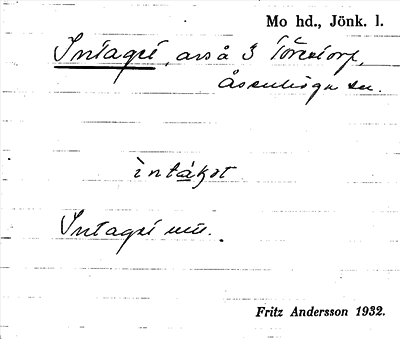 Mo hd., Jönk. l.
Intaget, avs å 3 Torestorp,
Åsenhöga sn.
ìntágət
Intaget
Fritz Andersson 1932.